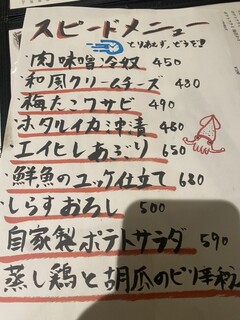 スピードメニュー
とりあえず、どうぞ!
・肉味噌冷奴 450
・和風クリームチーズ 480
・梅たこワサビ 490
・ホタルイカ沖漬 480
・エイヒレあぶり 650
・鮮魚のユッケ仕立て 680
・しらすおろし 500
・自家製ポテトサラダ 590
・蒸し鶏と胡瓜のピリ辛和え